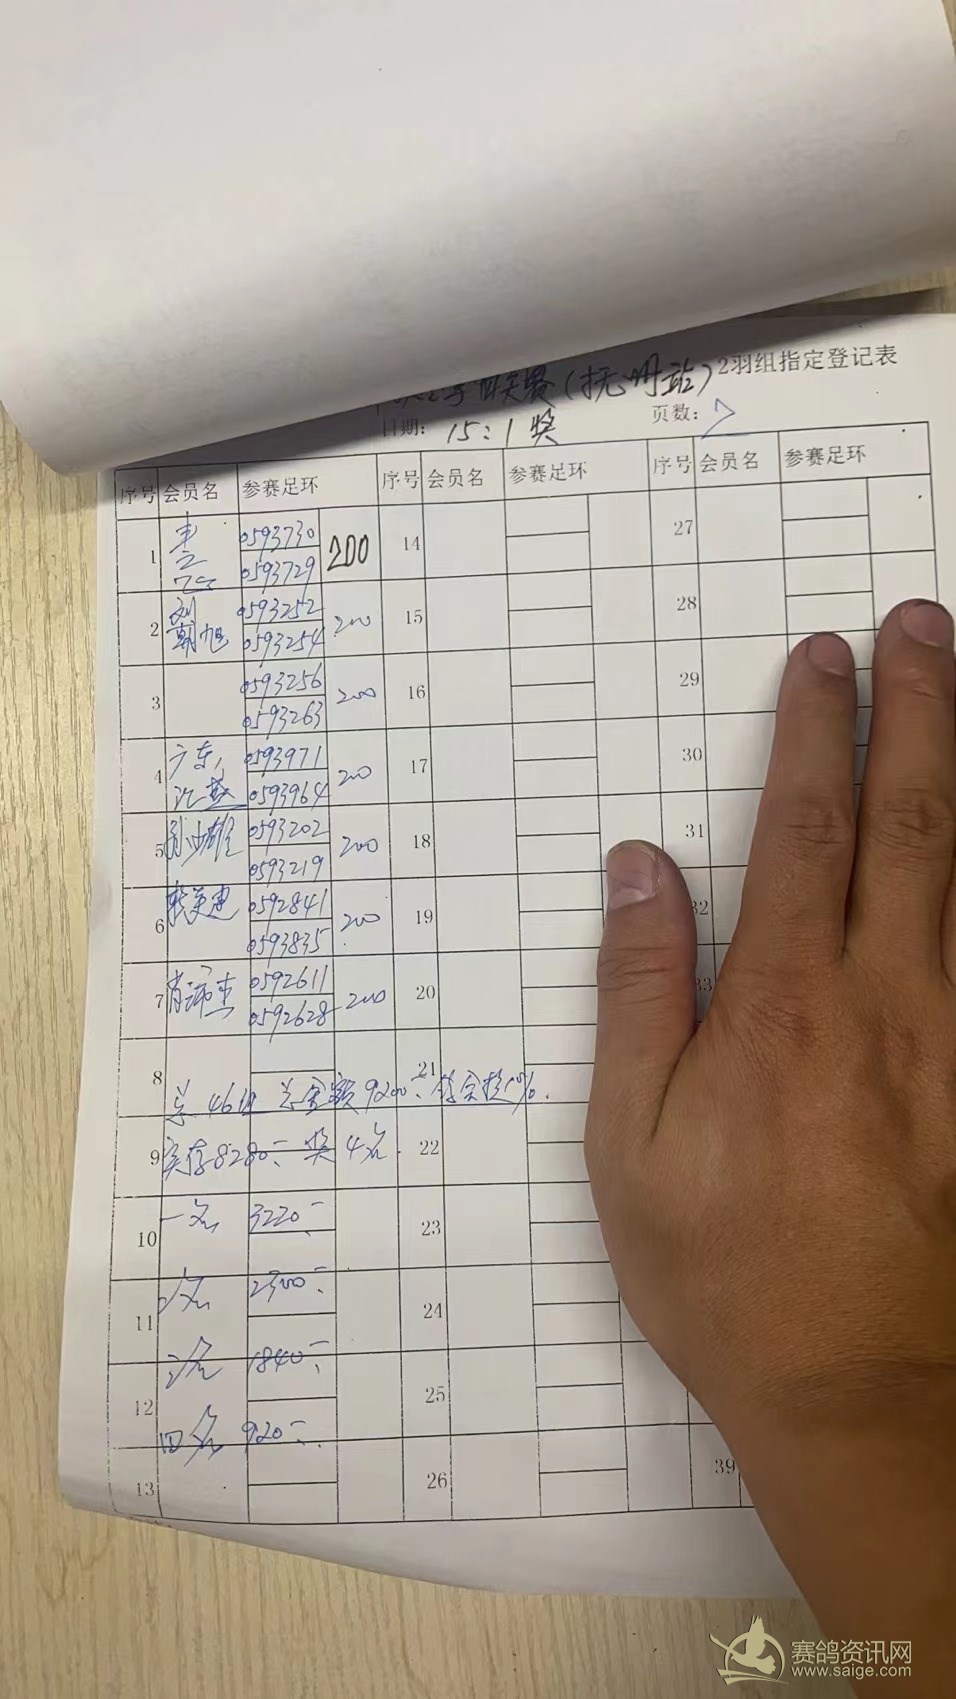 联赛(抚州站)2羽组指定登记表
日期: 15:1奖 页数: 7
序号 会员名 参赛足环 序号 会员名 参赛足环 序号 会员名 参赛足环
1 0593730 200 14 27
0593729
2 刘朝旭 0593252 200 15 28
0593254
3 0593256 200 16 29
0593263
4 广东 0593971 200 17 30
汇款 0593964
5 0593202 200 18 31
0593219
6 0592841 200 19 32
0593835
7 肖沛杰 0592611 200 20 33
0592628
8 21
总46组 总金额9200元 10%.
9 实存8280元 奖4名. 22
10 一名 3220元 23
11 2名 2300元 24
12 3名 1840元 25
四名 920元
13 26 39
赛鸽资讯网
www.saige.com